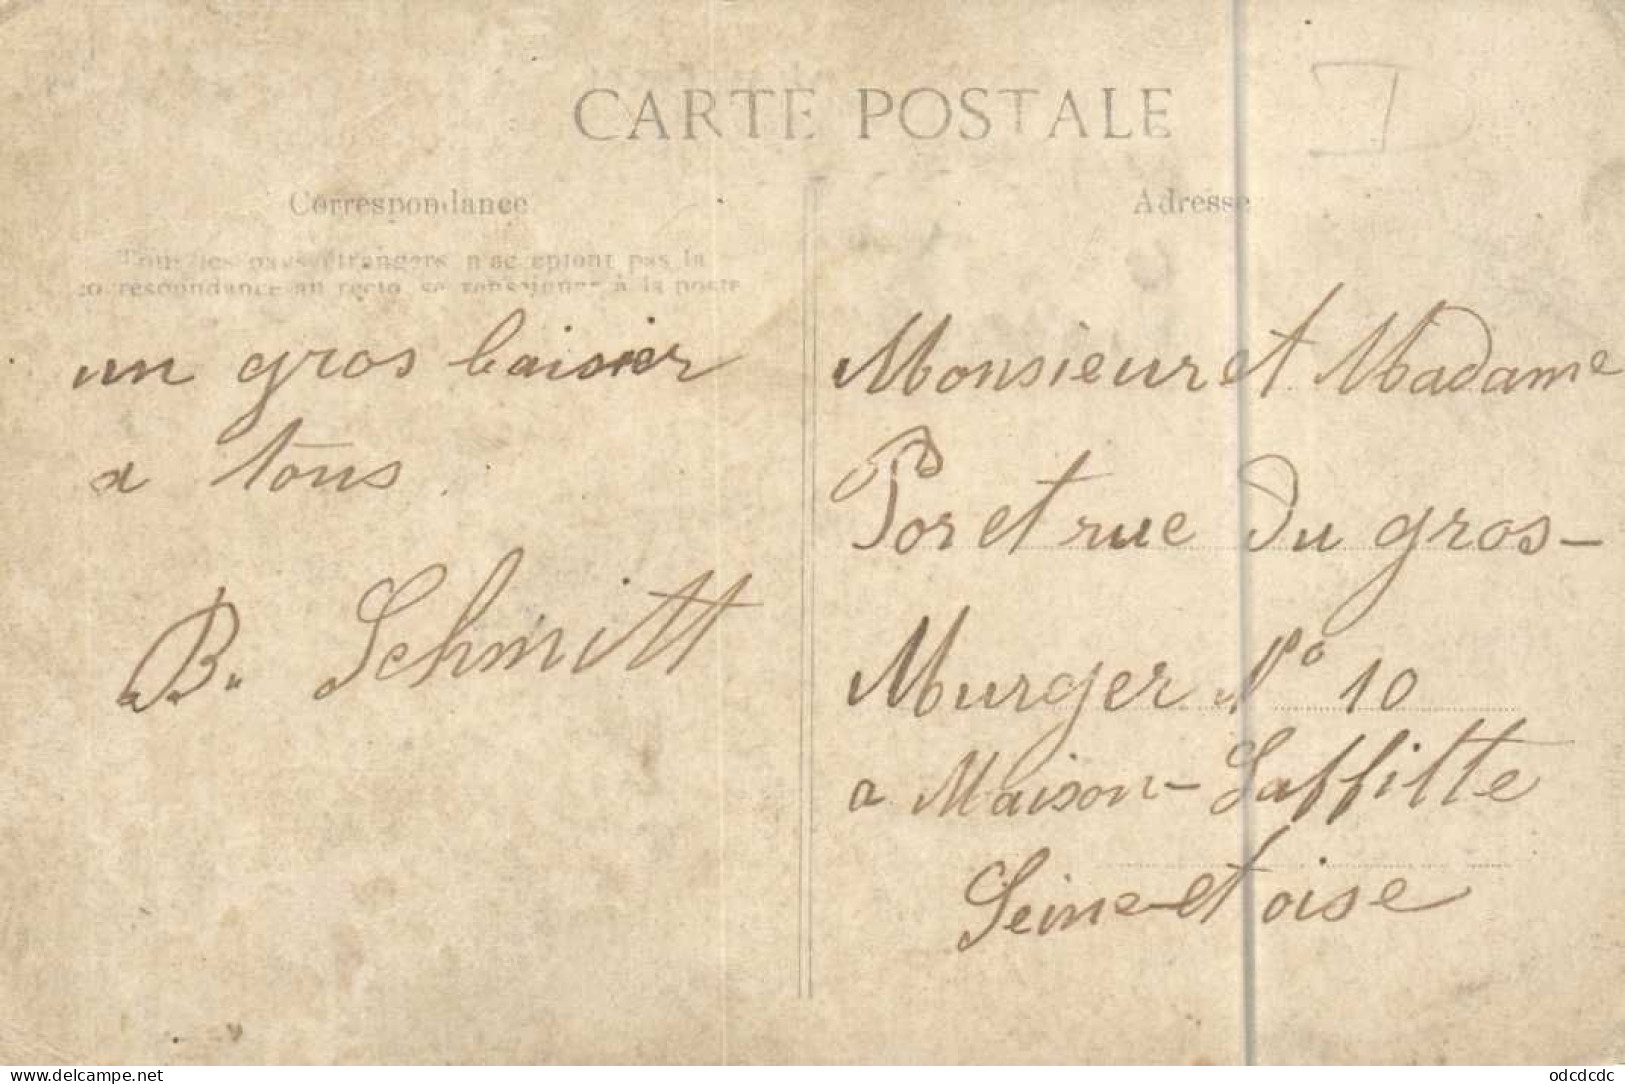 CARTE POSTALE
Correspondance
Tous les pays étrangers n'acceptent pas la
correspondance au recto, se renseigner à la poste
un gros baisier
a tous.
B. Schmitt
Adresse
Monsieur et Madame
Poret rue du gros-
Murger N° 10
a Maison-Laffitte
Seine et oise
www.delcampe.net
odcdcdc